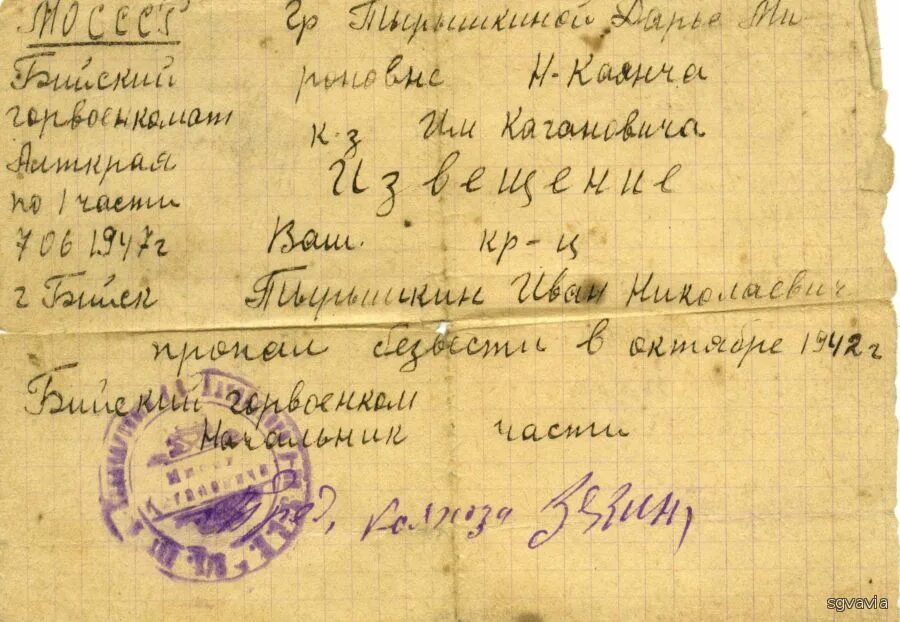 МО СССР
Бийский
горвоенкомат
Алткрая
по 1 части
7 06 1947г
г Бийск
гр Тырышкиной Дарье Ми
роновне Н-Каянча
к-з Им Кагановича
Извещение
Ваш. кр-ц
Тырышкин Иван Николаевич
пропал безвести в октябре 1942 г
Бийский горвоенком
Начальник части
Пред, колхоза Зяzин,
Имени
Кагановича
sgvavia